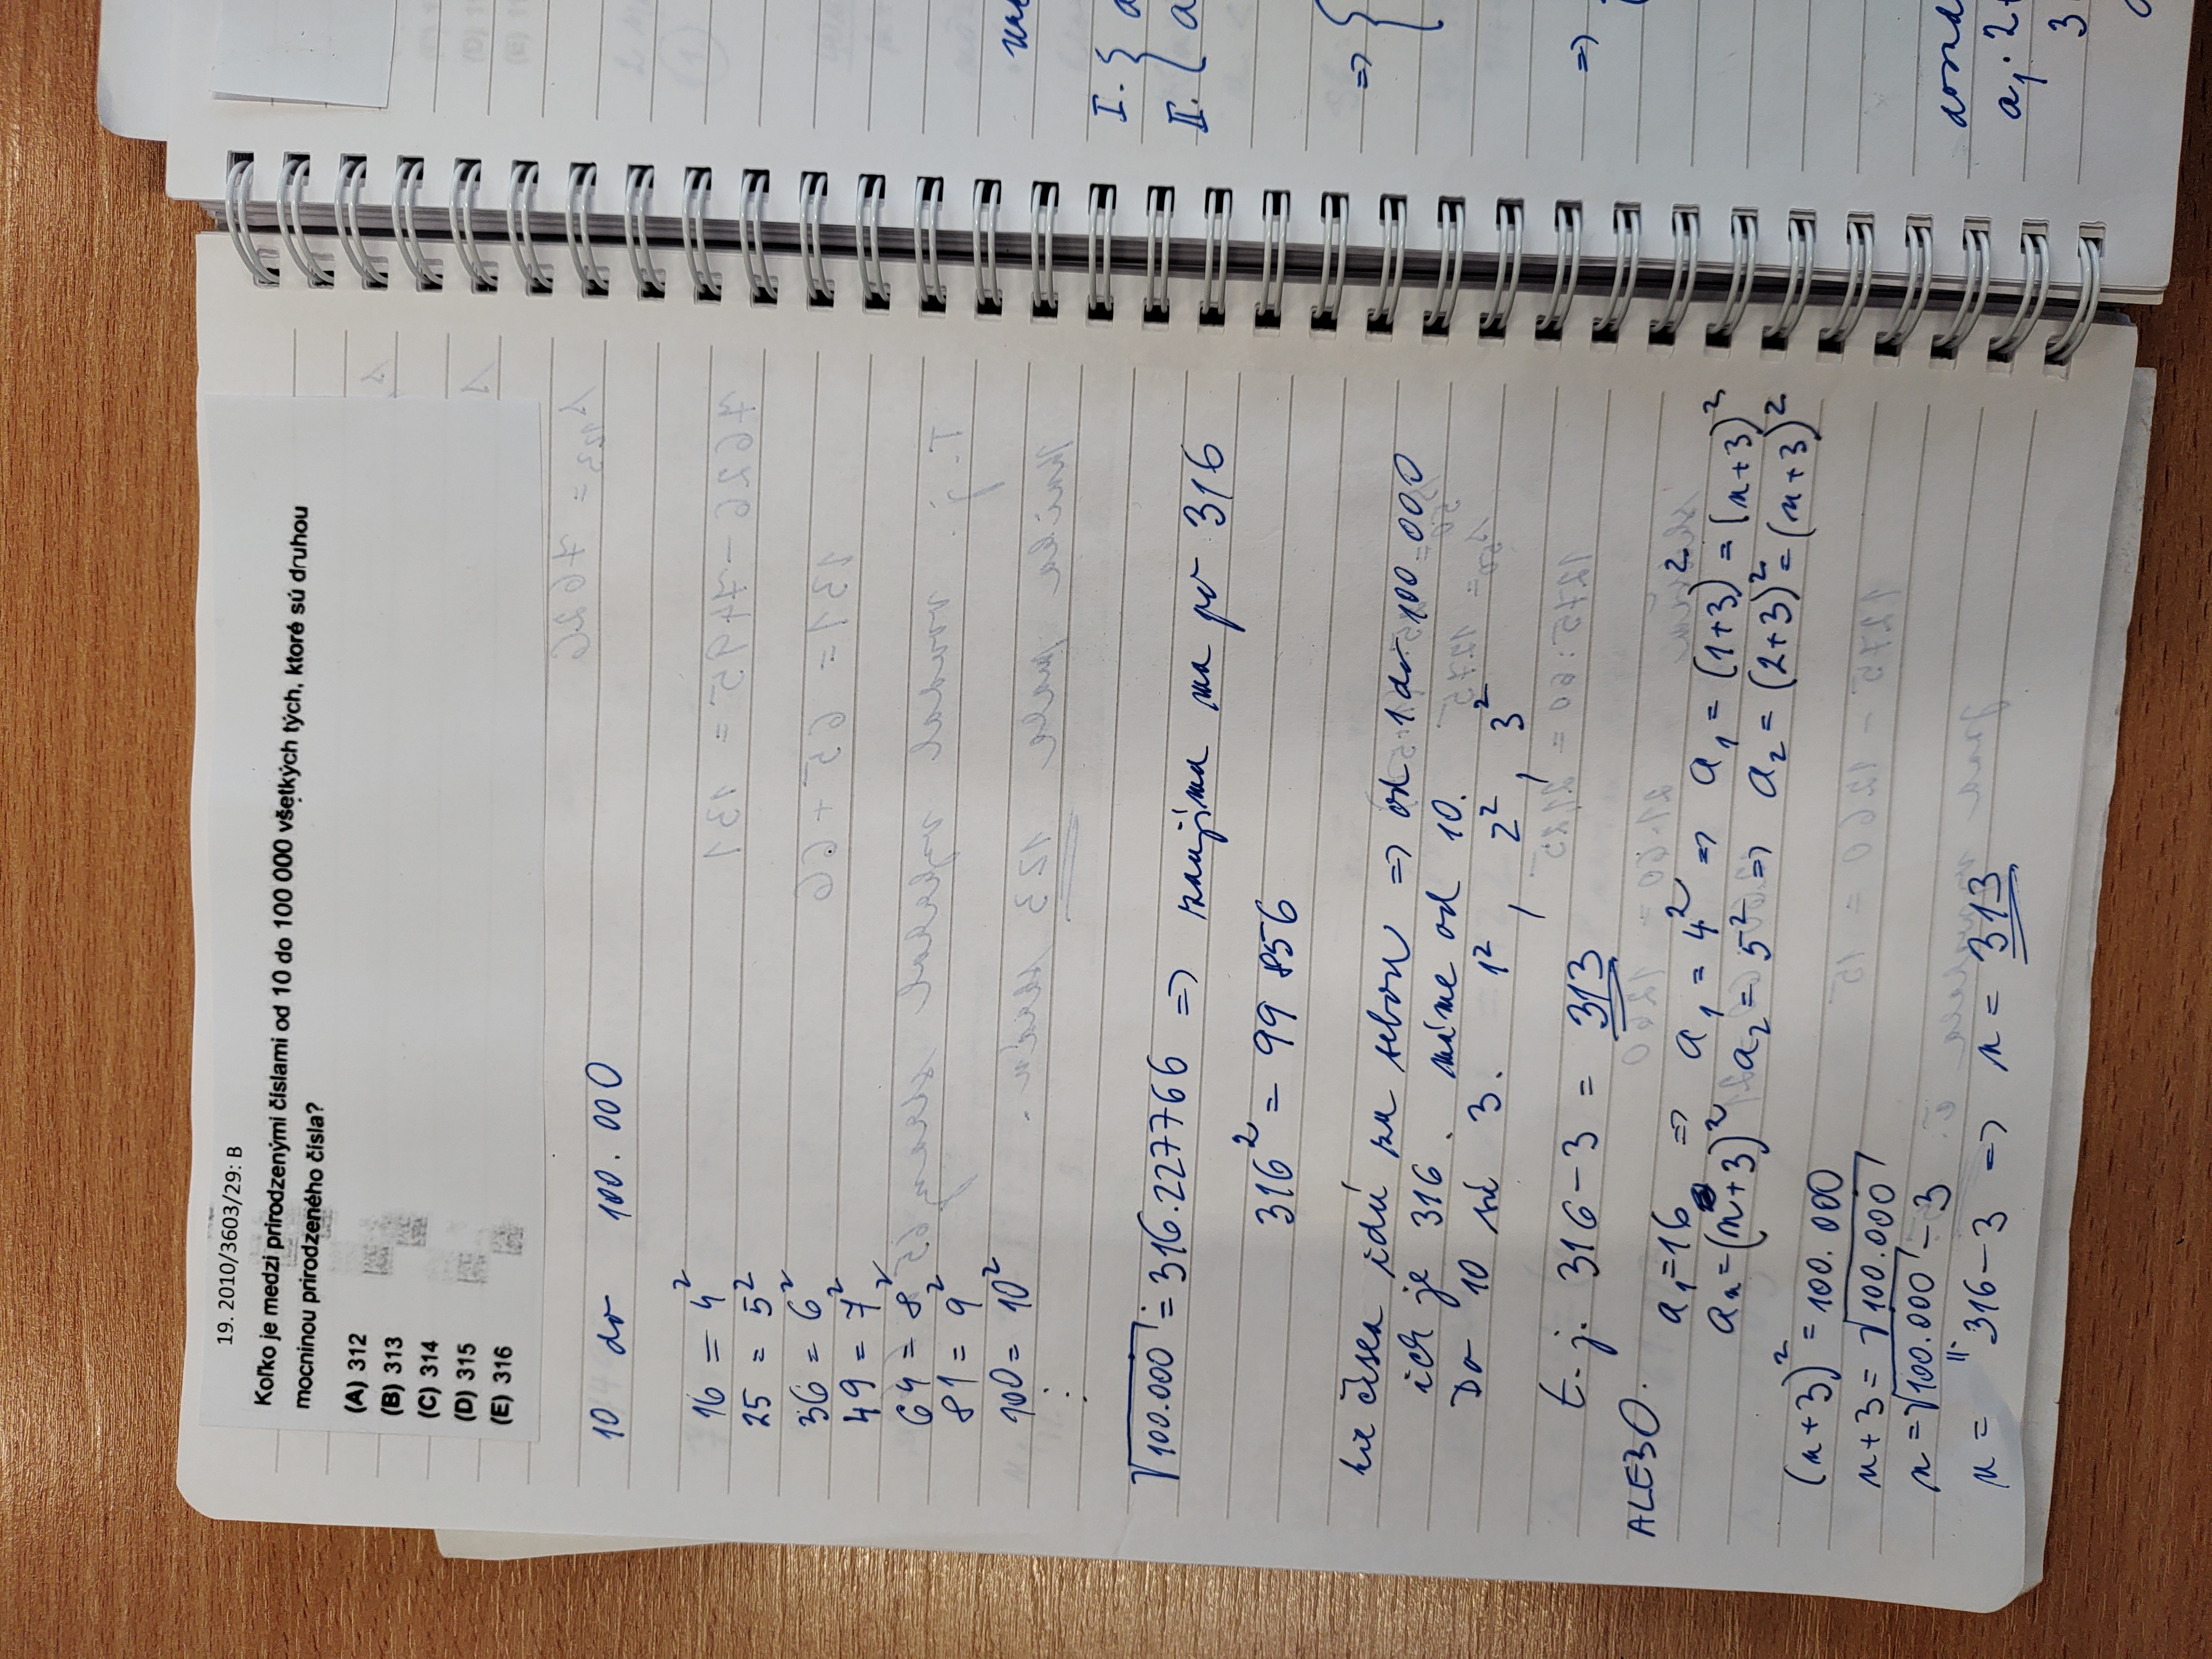 19. 2010/3603/29: B
Koľko je medzi prirodzenými číslami od 10 do 100 000 všetkých tých, ktoré sú druhou
mocninou prirodzeného čísla?
(A) 312
(B) 313
(C) 314
(D) 315
(E) 316
10 do 100.000
16 = 4²
25 = 5²
36 = 6²
49 = 7²
64 = 8²
81 = 9²
100 = 10²
⋮
√100.000 = 316.227766 => zaujíma ma po 316
316² = 99 856
čísla idú za sebou => od 1 do 100 000
ich je 316. máme od 10.
Do 10 sú 3. 1², 2², 3²
t. j. 316 - 3 = 313
ALEBO.
a₁ = 16 => a₁ = 4² => a₁ = (1+3)² = (n+3)²
aₙ = (n+3)² a₂ = 5² => a₂ = (2+3)² = (n+3)²
(n+3)² = 100.000
n+3 = √100.000
n = √100.000 - 3
n = 316 - 3 => n = 313
I. { a
II. { a
=> {
=>
a₁ · 2 +
3